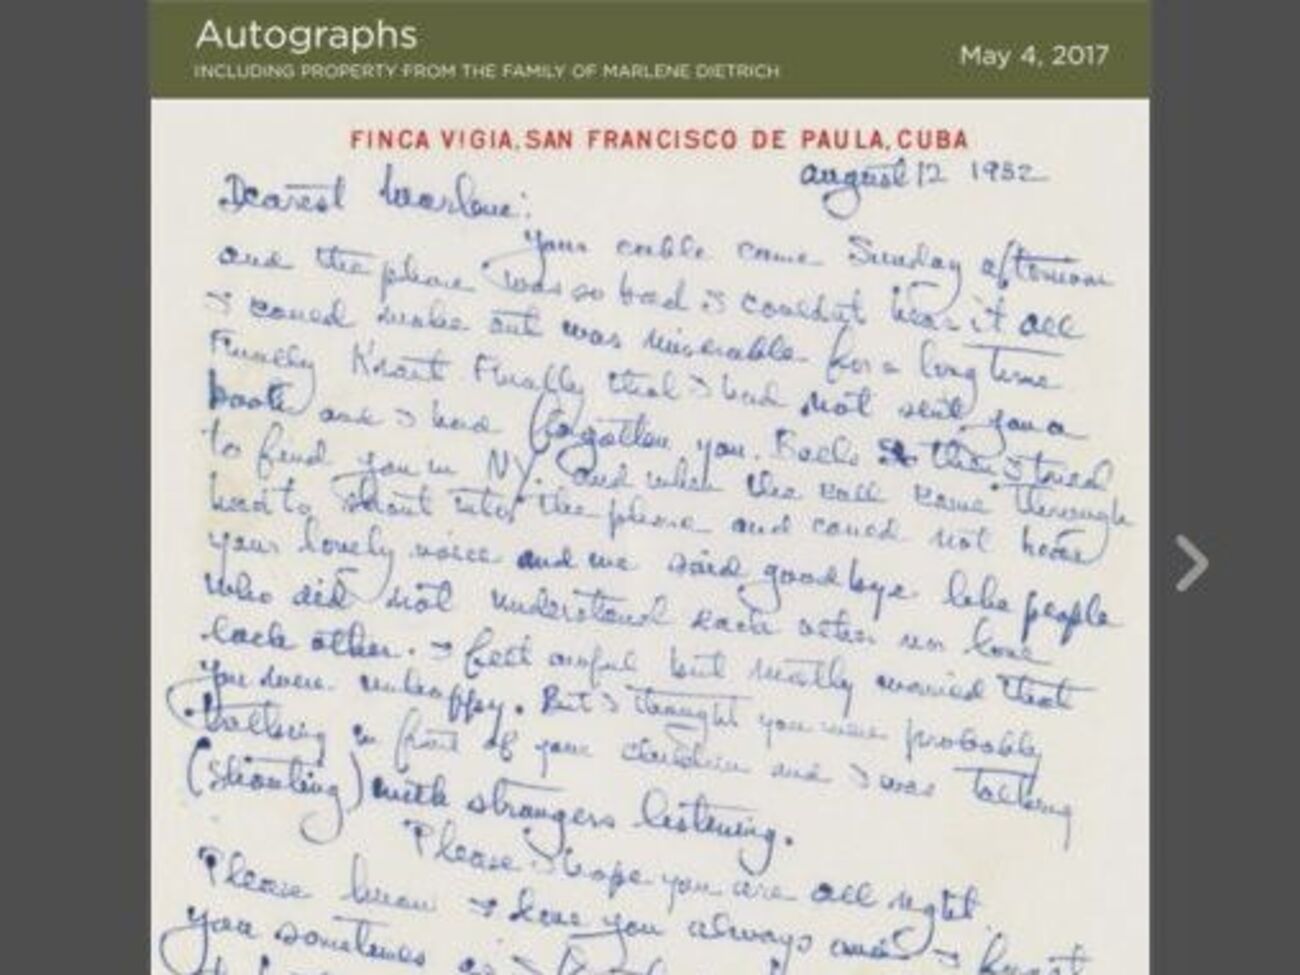 Autographs
INCLUDING PROPERTY FROM THE FAMILY OF MARLENE DIETRICH
May 4, 2017
FINCA VIGIA, SAN FRANCISCO DE PAULA, CUBA
august 12 1952
Dearest Marlene:
Your cable came Sunday afternoon
and the phone was so bad I couldnt hear it all
I could make out was miserable for a long time
Finally Kraut Finally that I had not sent you a
book and I had forgotten you. then I tried
to find you in NY. and when the call came through
had to shout into the phone and could not hear
your lovely voice and we said good bye like people
who did not understand each other nor love
each other. I felt awful but mostly worried that
you were unhappy. But I thought you were probably
talking in front of your children and I was talking
(shouting) with strangers listening.
Please I hope you are all right
Please know I love you always and I forget
you sometimes as I